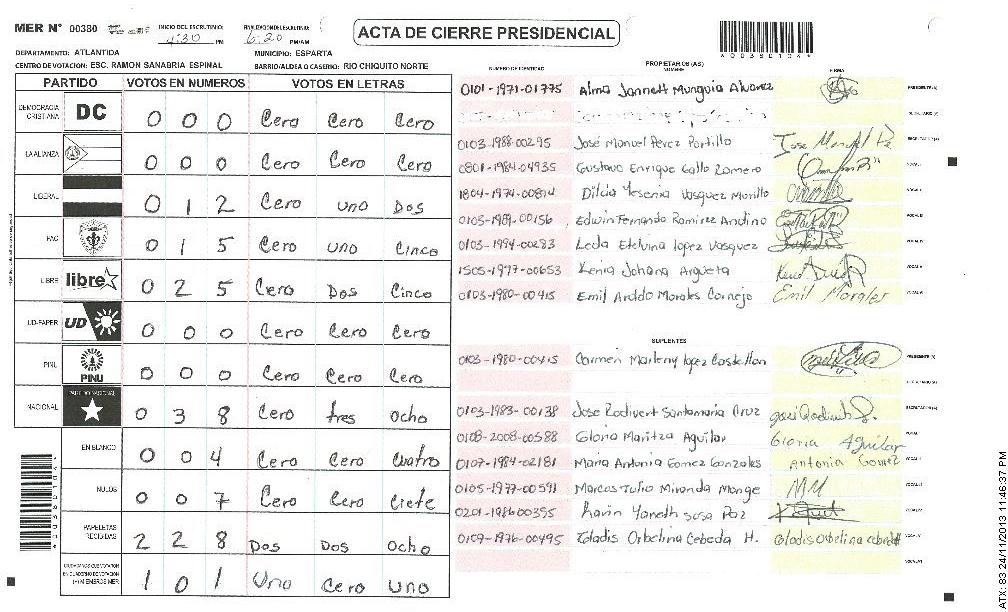 MER N° 00380 INICIO DEL ESCRUTINIO: 4:30 PM FINALIZACION DEL ESCRUTINIO: 6:20 PM/AM
ACTA DE CIERRE PRESIDENCIAL
DEPARTAMENTO: ATLANTIDA MUNICIPIO: ESPARTA
CENTRO DE VOTACION: ESC. RAMON SANABRIA ESPINAL BARRIO/ALDEA O CASERIO: RIO CHIQUITO NORTE
PARTIDO VOTOS EN NUMEROS VOTOS EN LETRAS
DEMOCRACIA CRISTIANA DC 0 0 0 Cero Cero Cero
LA ALIANZA 0 0 0 Cero Cero Cero
LIBERAL 0 1 2 Cero uno Dos
PAC 0 1 5 Cero uno Cinco
LIBRE libre 0 2 5 Cero Dos Cinco
UD-FAPER UD 0 0 0 Cero Cero Cero
PINU PINU 0 0 0 Cero Cero Cero
NACIONAL PARTIDO NACIONAL 0 3 8 Cero tres ocho
EN BLANCO 0 0 4 Cero Cero Cuatro
NULOS 0 0 7 Cero Cero Ciete
PAPELETAS RECIBIDAS 2 2 8 Dos Dos ocho
CIUDADANOS QUE VOTARON EN CUADERNO DE VOTACION (+) MIEMBROS MER 1 0 1 Uno Cero uno
PROPIETARIOS (AS)
NUMERO DE IDENTIDAD NOMBRE FIRMA
0101-1971-01775 Alma Jannett Munguia Alvarez PRESIDENTE (A)
0103-1988-00295 José Manuel Perez Portillo
0801-1984-04935 Gustavo Enrique Gallo Romero
1804-1974-00814 Dilcia Yesenia Vasquez Murillo
0103-1989-00156 Edwin Fernando Ramirez Andino
0103-1994-00283 Leda Etelvina lopez Vasquez
1505-1977-00653 Kenia Johana Argueta
0103-1980-00415 Emil Arddo Morales Cornejo Emil Morales
SUPLENTES
0103-1980-00415 Carmen Marleny lopez Castellon PRESIDENTE (A)
0103-1983-00138 Jose Rodivert Santamaria Cruz
0108-2008-00588 Gloria Maritza Aguilar Gloria Aguilar
0107-1984-02181 Maria Antonia Gomez Gonzales Antonia Gomez
0105-1977-00591 Marcos Tulio Miranda Monge MM
0201-198600355 Karin Yaneth sosa Paz
0109-1976-00495 Gladis Orbelina Cebeda H.
ATX: 83 24/11/2013 11:46:37 PM